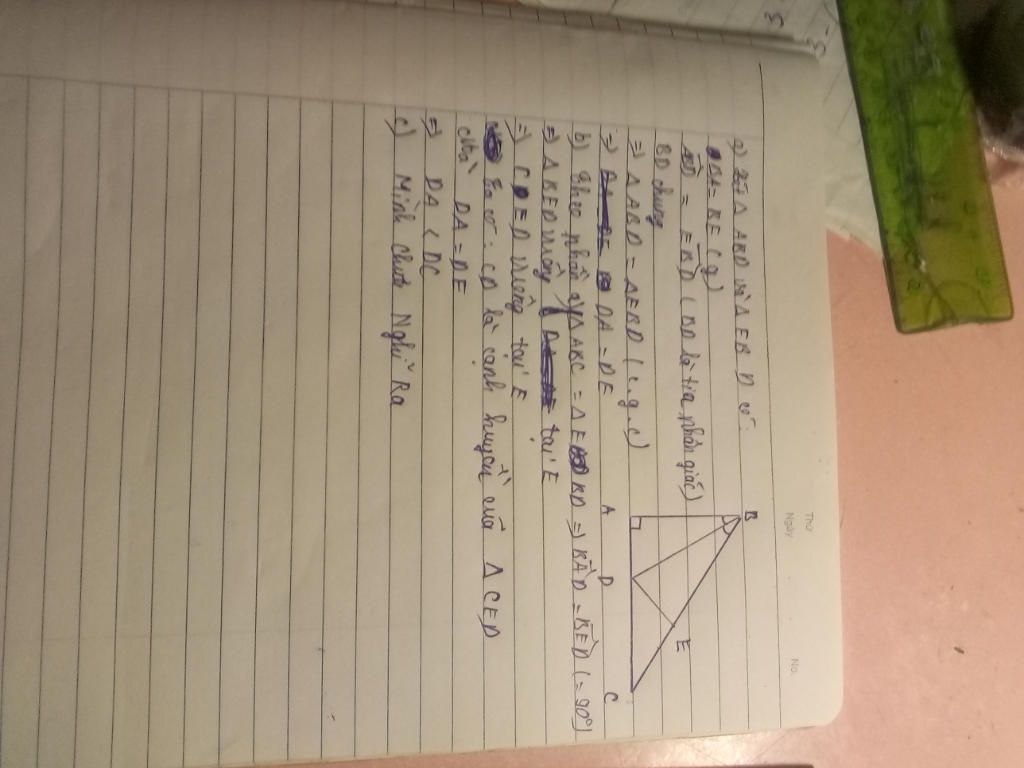 Thứ
Ngày
No.
a) Xét Δ ABD và Δ EBD có:
BA = BE (g)
ABD = EBD (BD là tia phân giác)
BD chung
=) Δ ABD = Δ EBD (c.g.c)
=) DA = DE
B
E
A D C
b) Theo phần a) Δ ABC = Δ E BD =) BAD = BED (= 90°)
=) Δ BED vuông tại E
=) CED vuông tại E
Ta có: CD là cạnh huyền của Δ CED
Mà DA = DE
=) DA < DC
c) Mình Chưa Nghĩ Ra